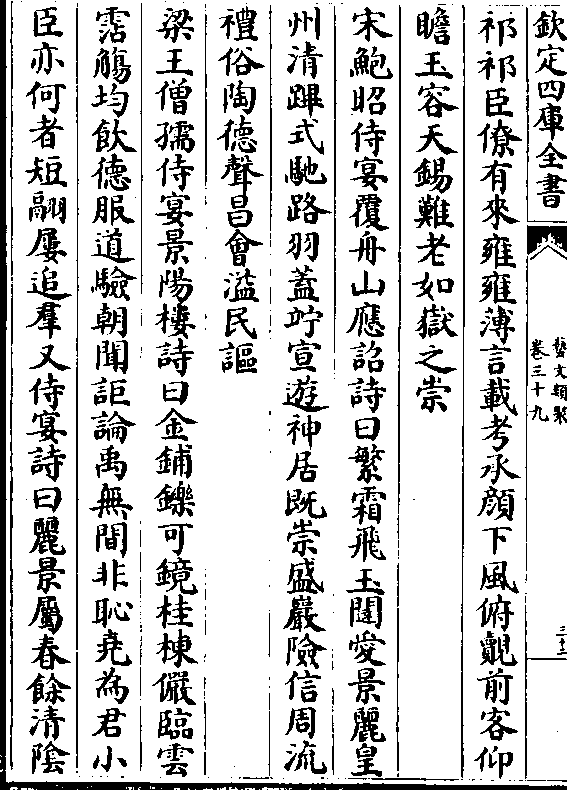 欽定四庫全書
藝文類聚
卷三十九
三十二
祁祁臣僚有來雍雍薄言載考承顔下風俯觀前客仰
瞻玉容天錫難老如嶽之崇
宋鮑昭侍宴覆舟山應詔詩曰繁霜飛玉闥愛景麗皇
州清蹕式馳路羽蓋竚宣遊神居既崇盛巖險信周流
禮俗陶德聲昌會溢民謳
梁王僧孺侍宴景陽樓詩曰金鋪鑠可鏡桂棟儼臨雲
霑觴均飲德服道驗朝聞詎論禹無間非恥堯為君小
臣亦何者短翮屢追羣又侍宴詩曰麗景屬春餘清陰